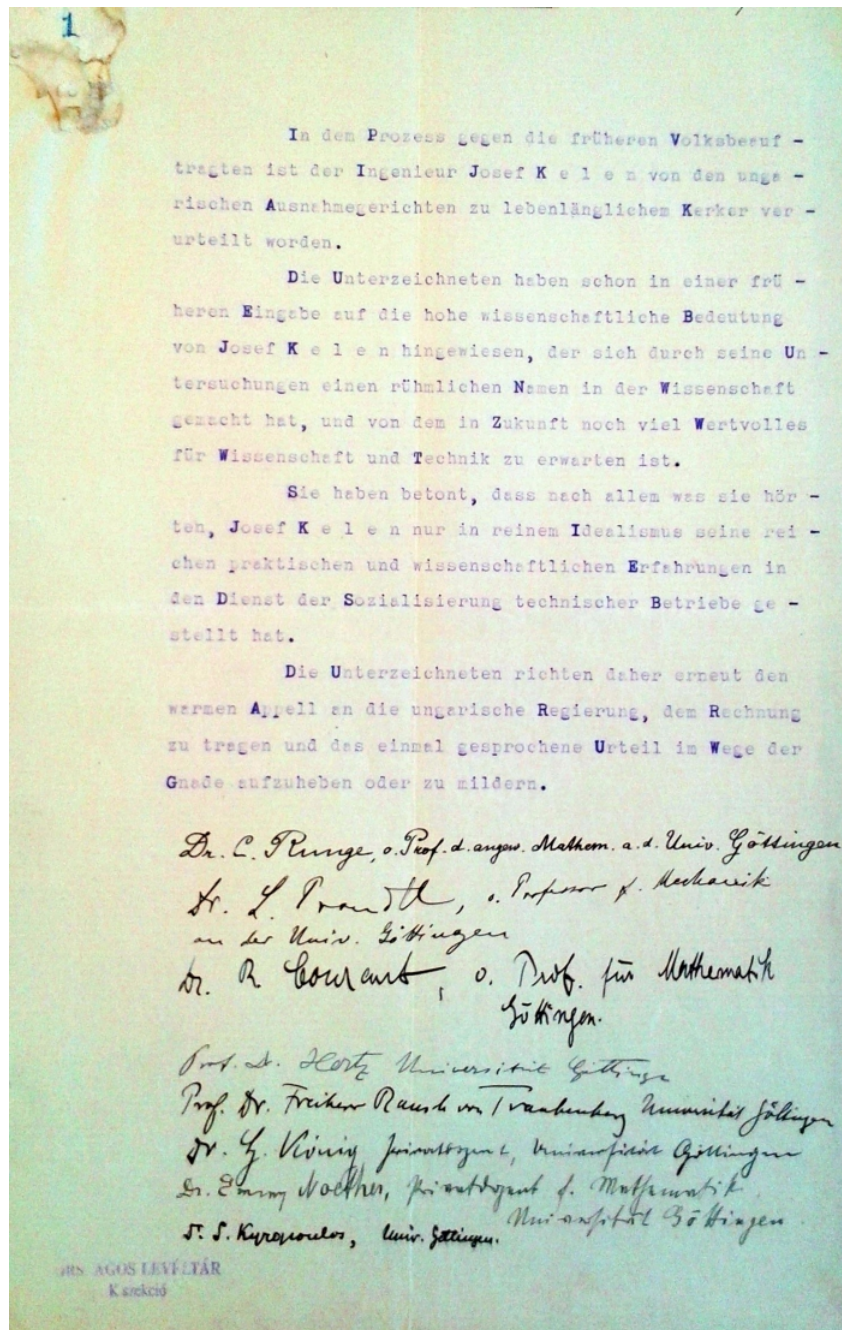 1
In dem Prozess gegen die früheren Volksbeauf -
tragten ist der Ingenieur Josef K e l e n von den unga -
rischen Ausnahmegerichten zu lebenlänglichem Kerker ver -
urteilt worden.
Die Unterzeichneten haben schon in einer frü -
heren Eingabe auf die hohe wissenschaftliche Bedeutung
von Josef K e l e n hingewiesen, der sich durch seine Un -
tersuchungen einen rühmlichen Namen in der Wissenschaft
gemacht hat, und von dem in Zukunft noch viel Wertvolles
für Wissenschaft und Technik zu erwarten ist.
Sie haben betont, dass nach allem was sie hör -
ten, Josef K e l e n nur in reinem Idealismus seine rei -
chen praktischen und wissenschaftlichen Erfahrungen in
den Dienst der Sozialisierung technischer Betriebe ge -
stellt hat.
Die Unterzeichneten richten daher erneut den
warmen Appell an die ungarische Regierung, dem Rechnung
zu tragen und das einmal gesprochene Urteil im Wege der
Gnade aufzuheben oder zu mildern.
Dr. C. Runge, o. Prof. d. angew. Mathem. a. d. Univ. Göttingen
Dr. L. Prandtl, o. Professor f. Mechanik
an der Univ. Göttingen
Dr. R. Courant, o. Prof. für Mathematik
Göttingen.
Prof. Dr. Hertz Universität Göttingen
Prof. Dr. Freiherr Rausch von Traubenberg Universität Göttingen
Dr. H. König Privatdozent, Universität Göttingen
Dr. Emmy Noether, Privatdozent f. Mathematik
Universität Göttingen.
Dr. S. Kyropoulos, Univ. Göttingen.
LEVÉLTÁR
K szekció